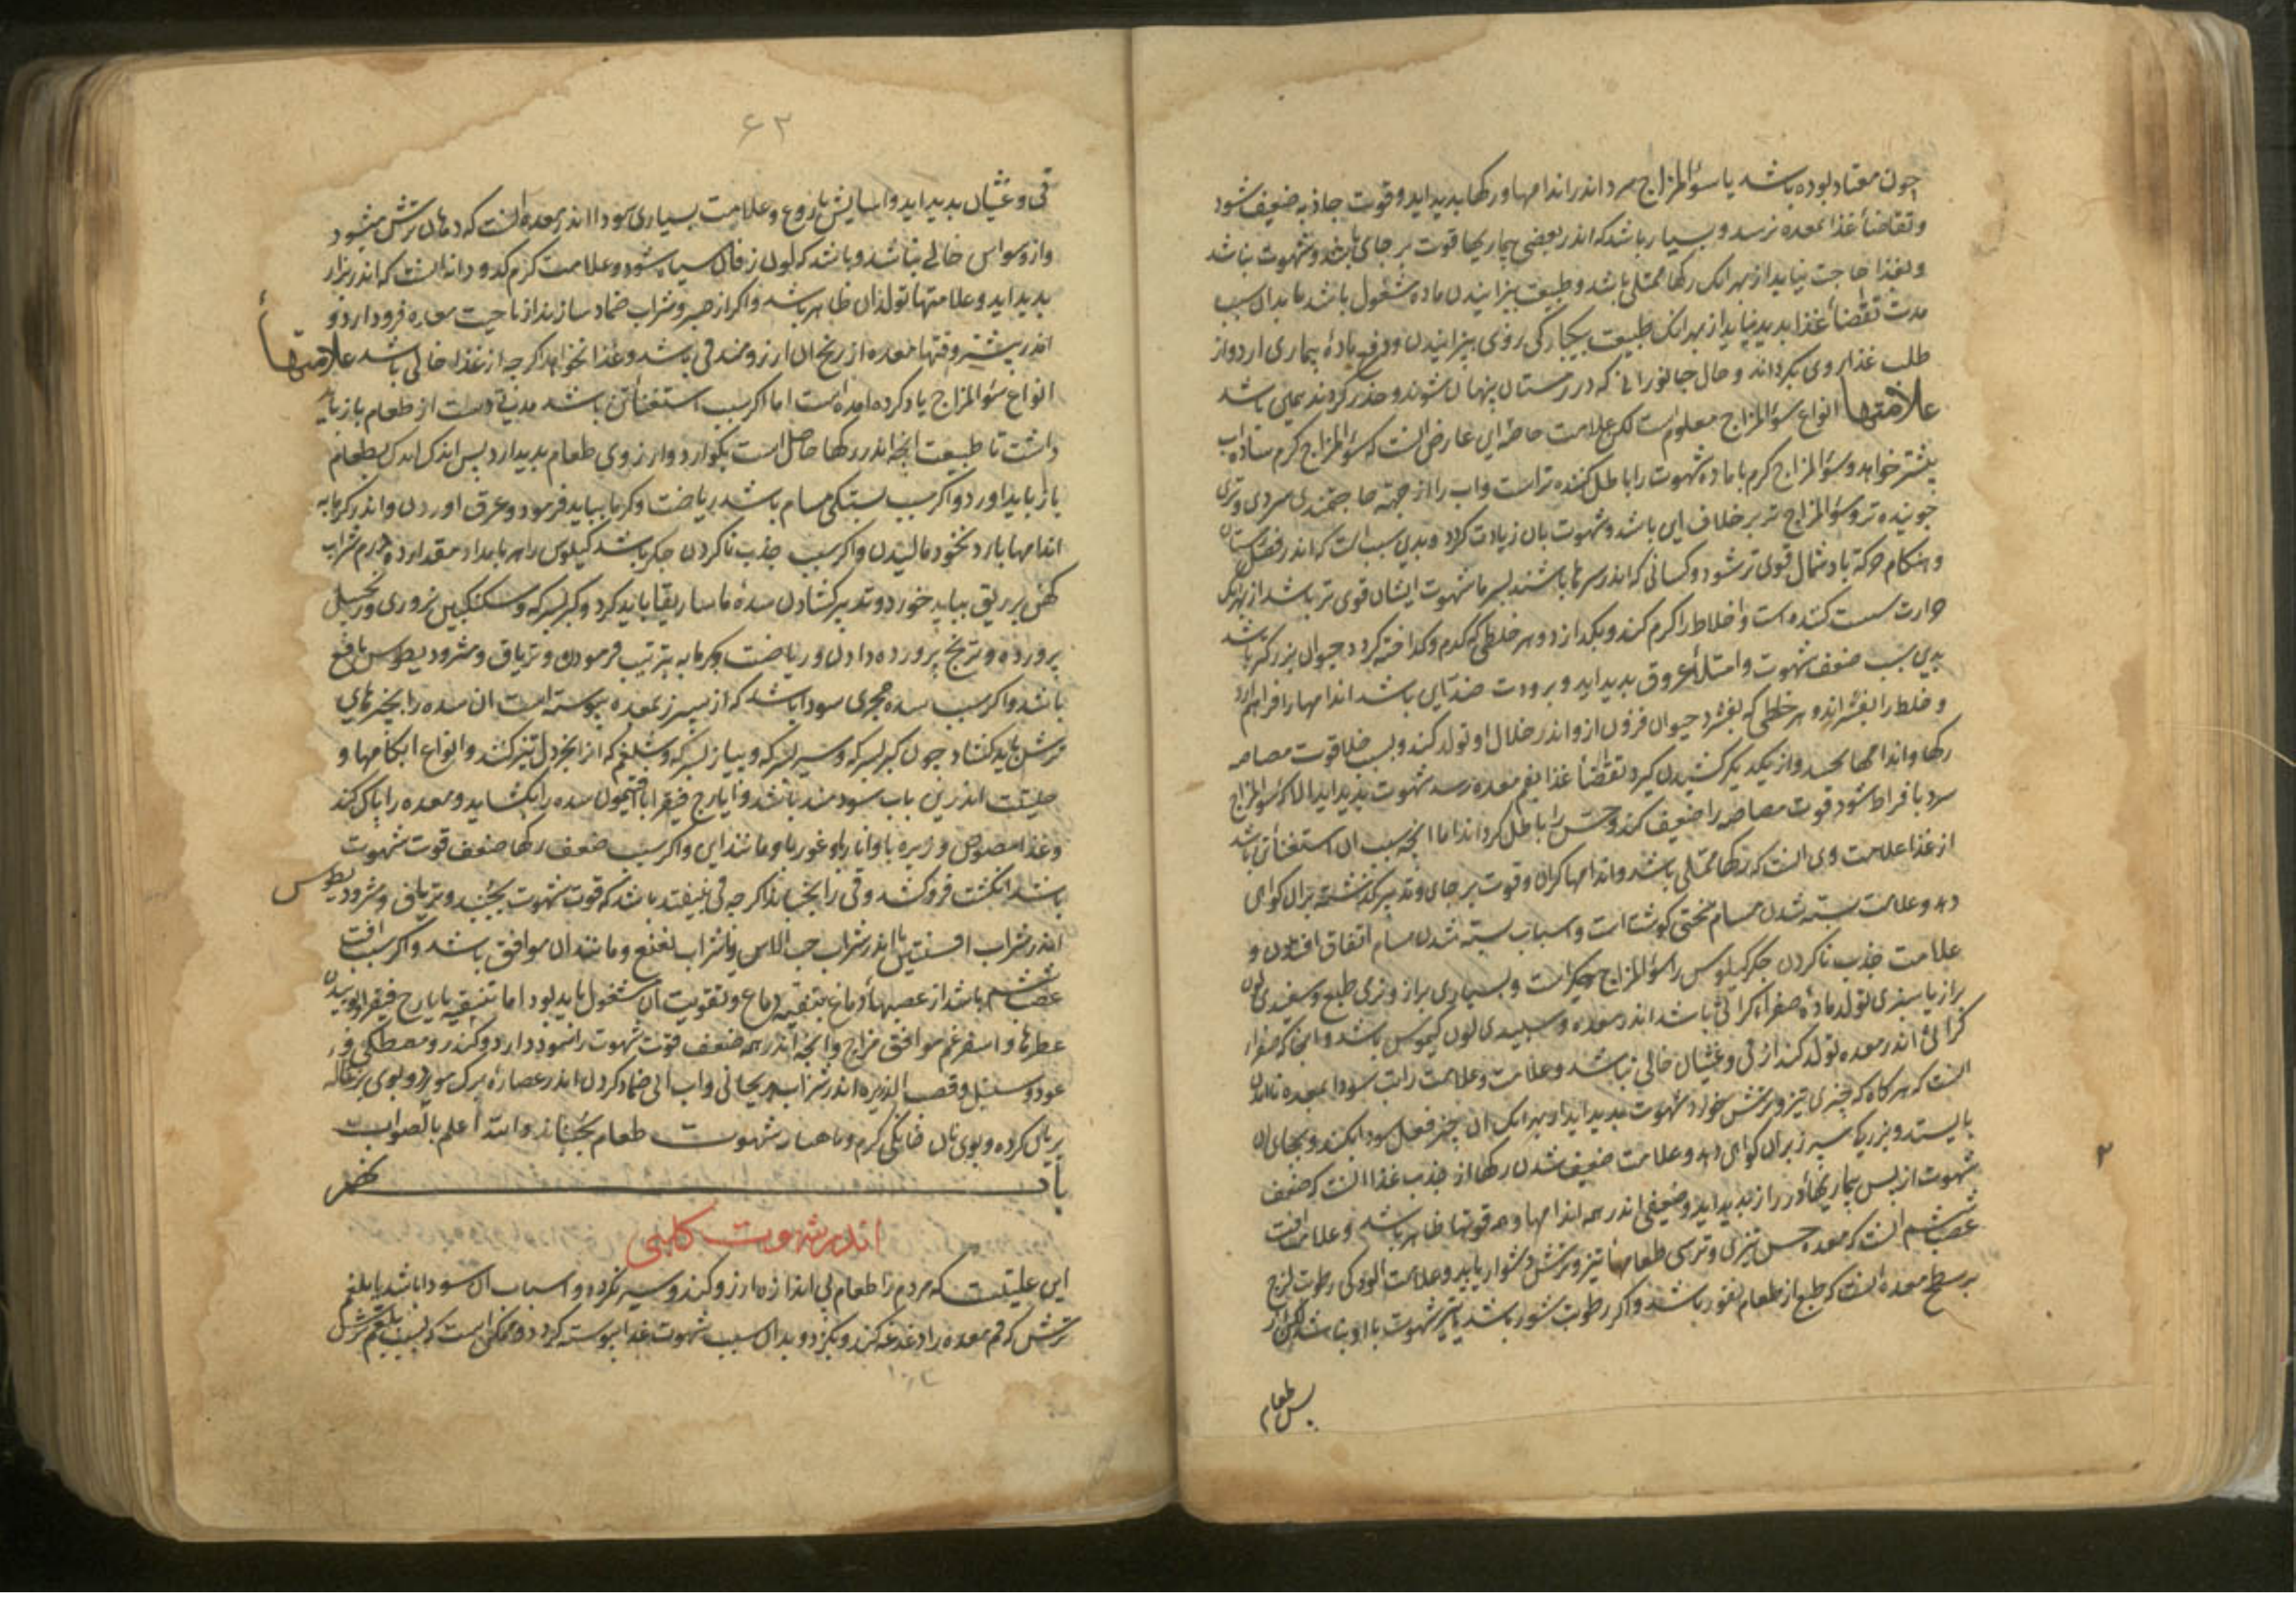 چون معتاد بوده باشد یا سوءالمزاج سرد اندر اندامها و رکها بدید اید و قوت جاذبه ضعیف شود
و تقاضاء غذا بمعده نرسد و بسیار باشد که اندر بعضی بیماریها قوت بر جای باشد و شهوت نباشد
و بغذا حاجت نیاید از بهر انک رکها ممتلی باشد و طبیعت ببزانیدن ماده مشغول باشد بدان سبب
مدت تقضاء غذا بدید نیاید از بهر انک طبیعت بیکبارکی روی ببزانیدن و دفع ماده بیماری ارد و از
طلب غذا روی بکرداند و حال جانورانی که در زمستان پنهان شوند و حذر کردند همین باشد
علامتها انواع سوءالمزاج معلوم است لکن علامت خاصه این عارض انست که سوءالمزاج کرم ساده اب
بیشتر خواهد و سوءالمزاج کرم با ماده شهوت را باطل کننده تر است و اب را از جهة حاجتمندی سردی و تری
جوینده تر و سوءالمزاج تر بر خلاف این باشد و شهوت بان زیادت کردد و بدین سبب است که اندر فصل زمستان
و هنکام حرکة باد شمال قوی تر شود و کسانی که اندر سرما باشند بسرما شهوت ایشان قوی تر باشد از بهر انک
حرارت سست کننده است و اخلاط را کرم کند و بکدازد و هر خلطی که کرم و کداخته کردد حیوان بزرکتر باشد
بدین سبب ضعف شهوت و امتلاء عروق بدید اید و برودت ضد این باشد اندامها را فراهم ارد
و خلط را بفشراند و هر خلطی که بفشرد حیوان فزون ازو اندر خلال او تولد کند و بسبب خلا قوت مصاصه
رکها و اندامها بجنبد و از یکدیکر کشیدن کیرد تقضاء غذا بفم معده رسد شهوت بدید اید الا که سوءالمزاج
سرد بافراط شود قوت مصاصه را ضعیف کند و حس را باطل کرداند اما انچه سبب ان استغناء تن باشد
از غذا علامت وی انست که رکها ممتلی باشد و اندامها کران و قوت بر جای و تدبیر کذشته بران کواهی
دهد و علامت بسته شدن مسام سختی کوشت است و اسباب بسته شدن مسام اتفاق افتادن و
علامت جذب ناکردن جکر کیلوس را سوءالمزاج جکر است و بسیاری براز و نرمی طبع و سفیدی لون
براز یا سبزی تولد ماده صفرا کرانی باشد اندر معده و سبیدی لون کیموس باشد و انجا که صفرا
کرانی اندر معده تولد کند از قی و غثیان خالی نباشد و علامت راتب سودا بمعده نامدن
انست که هرکاه که چیزی تیز و ترش خورد شهوت بدید اید از بهر انک ان چیز فعل سودا بکند و بجای ان
بایستد و بزرکی سپرز بران کواهی دهد و علامت ضعیف شدن رکها از جذب غذا انست که ضعف
شهوت از بس بیماریهاء دراز بدید اید و ضعیفی اندر همه اندامها و همه قوتها ظاهر باشد و علامت افت
عصبها انست که معده حس تیزی و ترشی طعامهاء تیز و ترش دشوار یابد و علامت الودکی رطوبت لزج
بر سطح معده انست که طبع از طعام نفور باشد و اکر رطوبت شور باشد یا تیز شهوت با او نباشد لکن از
بس طعام
۲
۶۲
قی و غثیان بدید اید و اسایش باروغ و علامت بسیاری سودا اندر معده انست که دهان ترش میشود
و از وسواس خالی نباشد و باشد که لون زفان سیاه شود و علامت کرم کدودانه انست که اندر براز
بدید اید و علامتها تولد ان ظاهر باشد و اکر از صبر و شراب ضماد سازند از ناحیت معده فرود ارد و
اندر بیشتر وقتها معده از رنج ان ارزومند قی باشد و غذا نخواهد اکرچه از غذا خالی باشد علامتهاء
انواع سوءالمزاج یاد کرده امده است اما اکر سبب استغناء تن باشد مدتی دست از طعام باز باید
داشت تا طبیعت انچه اندر رکها حاصل است بکوارد و ارزوی طعام بدید ارد بس اندک اندک بطعام
باز باید اورد و اکر سبب بستکی مسام باشد ریاضت و کرمابه بباید فرمود و عرق اوردن و اندر کرمابه
اندامها بارد نخود مالیدن و اکر سبب جذب ناکردن جکر باشد کیلوس را هر بامداد مقدار ده درم شراب
کهن بر ریق بباید خورد و تدبیر کشادن سدهٔ ماساریقا باید کرد و کبر بسرکه و سکنکبین بزوری و زنجبیل
پرورده و ترنج پرورده دادن و ریاضت و کرمابه بترتیب فرمودن و تریاق و مثرودیطوس نافع
باشد و اکر سبب سده مجری سودا باشد که از سپرز بمعده پیوسته است ان سده را بچیزهای
ترش باید کشاد چون کبر بسرکه و سیر بسرکه و پیاز بسرکه و شلغم که انرا بخردل تیز کنند و انواع ابکامها و
حلتیت اندرین باب سودمند باشد و ایارج فیقرا با افتیمون سده را بکشاید و معده را پاک کند
و غذا مصوص و زیره با و انار با و غوره با و مانند این و اکر سبب ضعف رکها ضعف قوت شهوت
باشد انکشت فروکشد و قی را بجنباند اکرچه قی نیفتد باشد که قوت شهوت بجنبد و تریاق و مثرودیطوس
اندر شراب افسنتین یا اندر شراب حب الاس و شراب نعنع و مانند ان موافق باشد و اکر سبب افت
عصبها باشد از عصبهاء دماغ بتنقیه دماغ و تقویت ان مشغول باید بود اما تنقیه بایارج فیقرا و بوییدن
عطرها و اسفرغم موافق مزاج و انچه اندر همه ضعف قوت شهوت را سود دارد و کندر و مصطکی و
عود و سنبل و قصب الذریره اندر شراب ریحانی و اب ابی ضماد کردن اندر عصارهٔ برک مورد و بوی بزغاله
بریان کرده و بوی نان خانکی کرم و ماهتابه شهوت طعام بجنباند والله اعلم بالصواب
باب نهم
اندر شهوت کلبی
این علتیست که مردم را طعام بی اندازه ارزو کند و سیر نکردد و اسباب ان سودا باشد یا بلغم
ترش که فم معده را دغدغه کند و بکزد و بدان سبب شهوت غذا پیوسته کردد و ممکن است که بسبب بلغم ترش